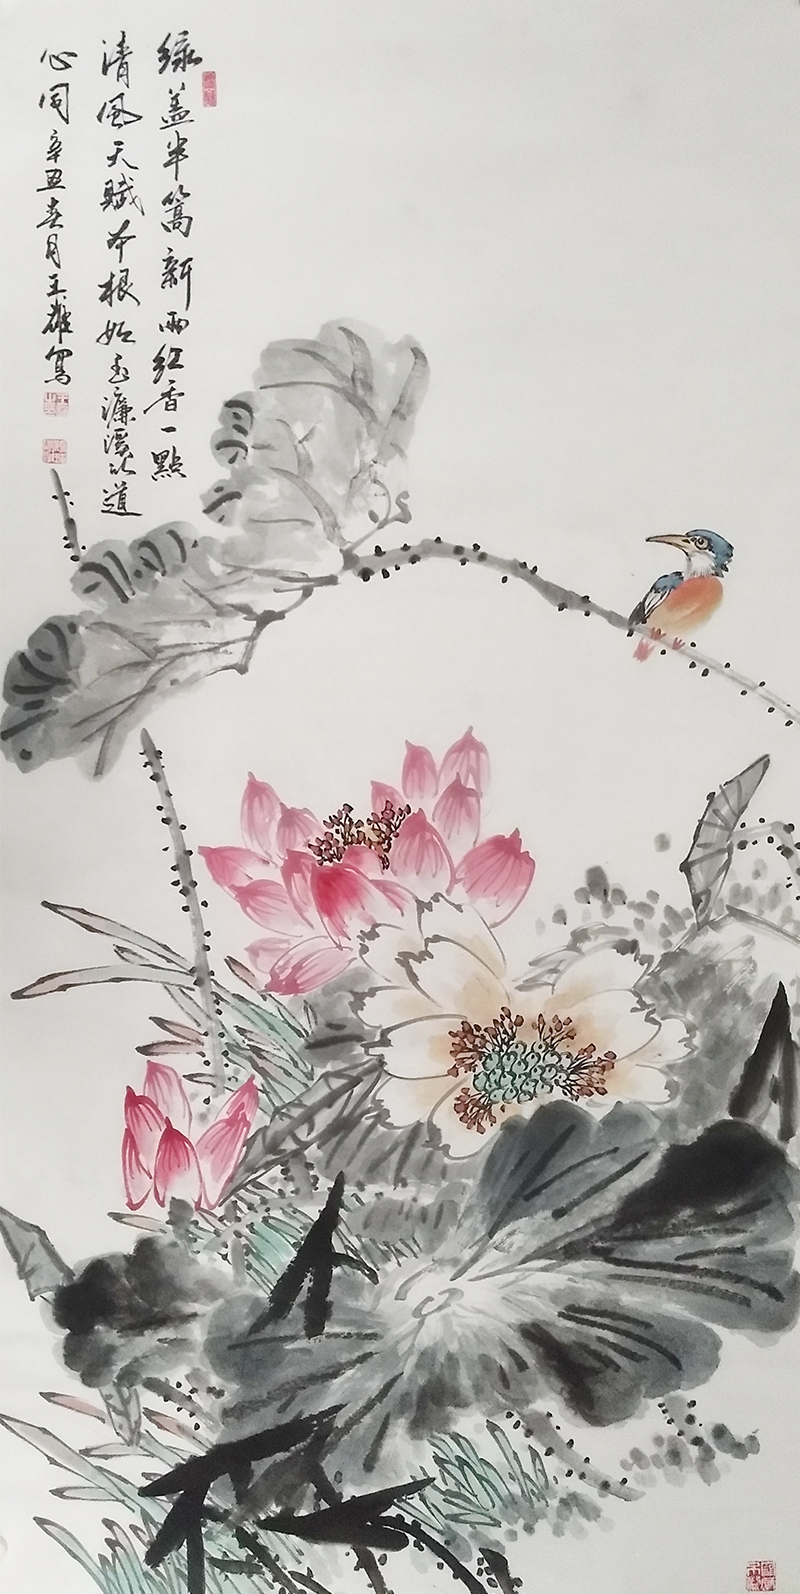 绿盖半篙新雨红香一點
清風天赋本根如玉濂溪以道
心同辛丑春月王雄寫